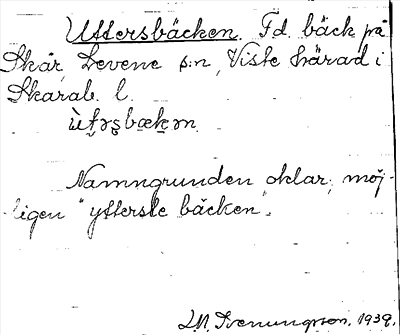 Uttersbäcken. Fd. bäck på
Skår, Levene s:n, Viste härad i
Skarab. l.
ùt̯ə̣ʂbæk̯əṇ
Namngrunden oklar, möj-
ligen "ytterste bäcken".
1939.